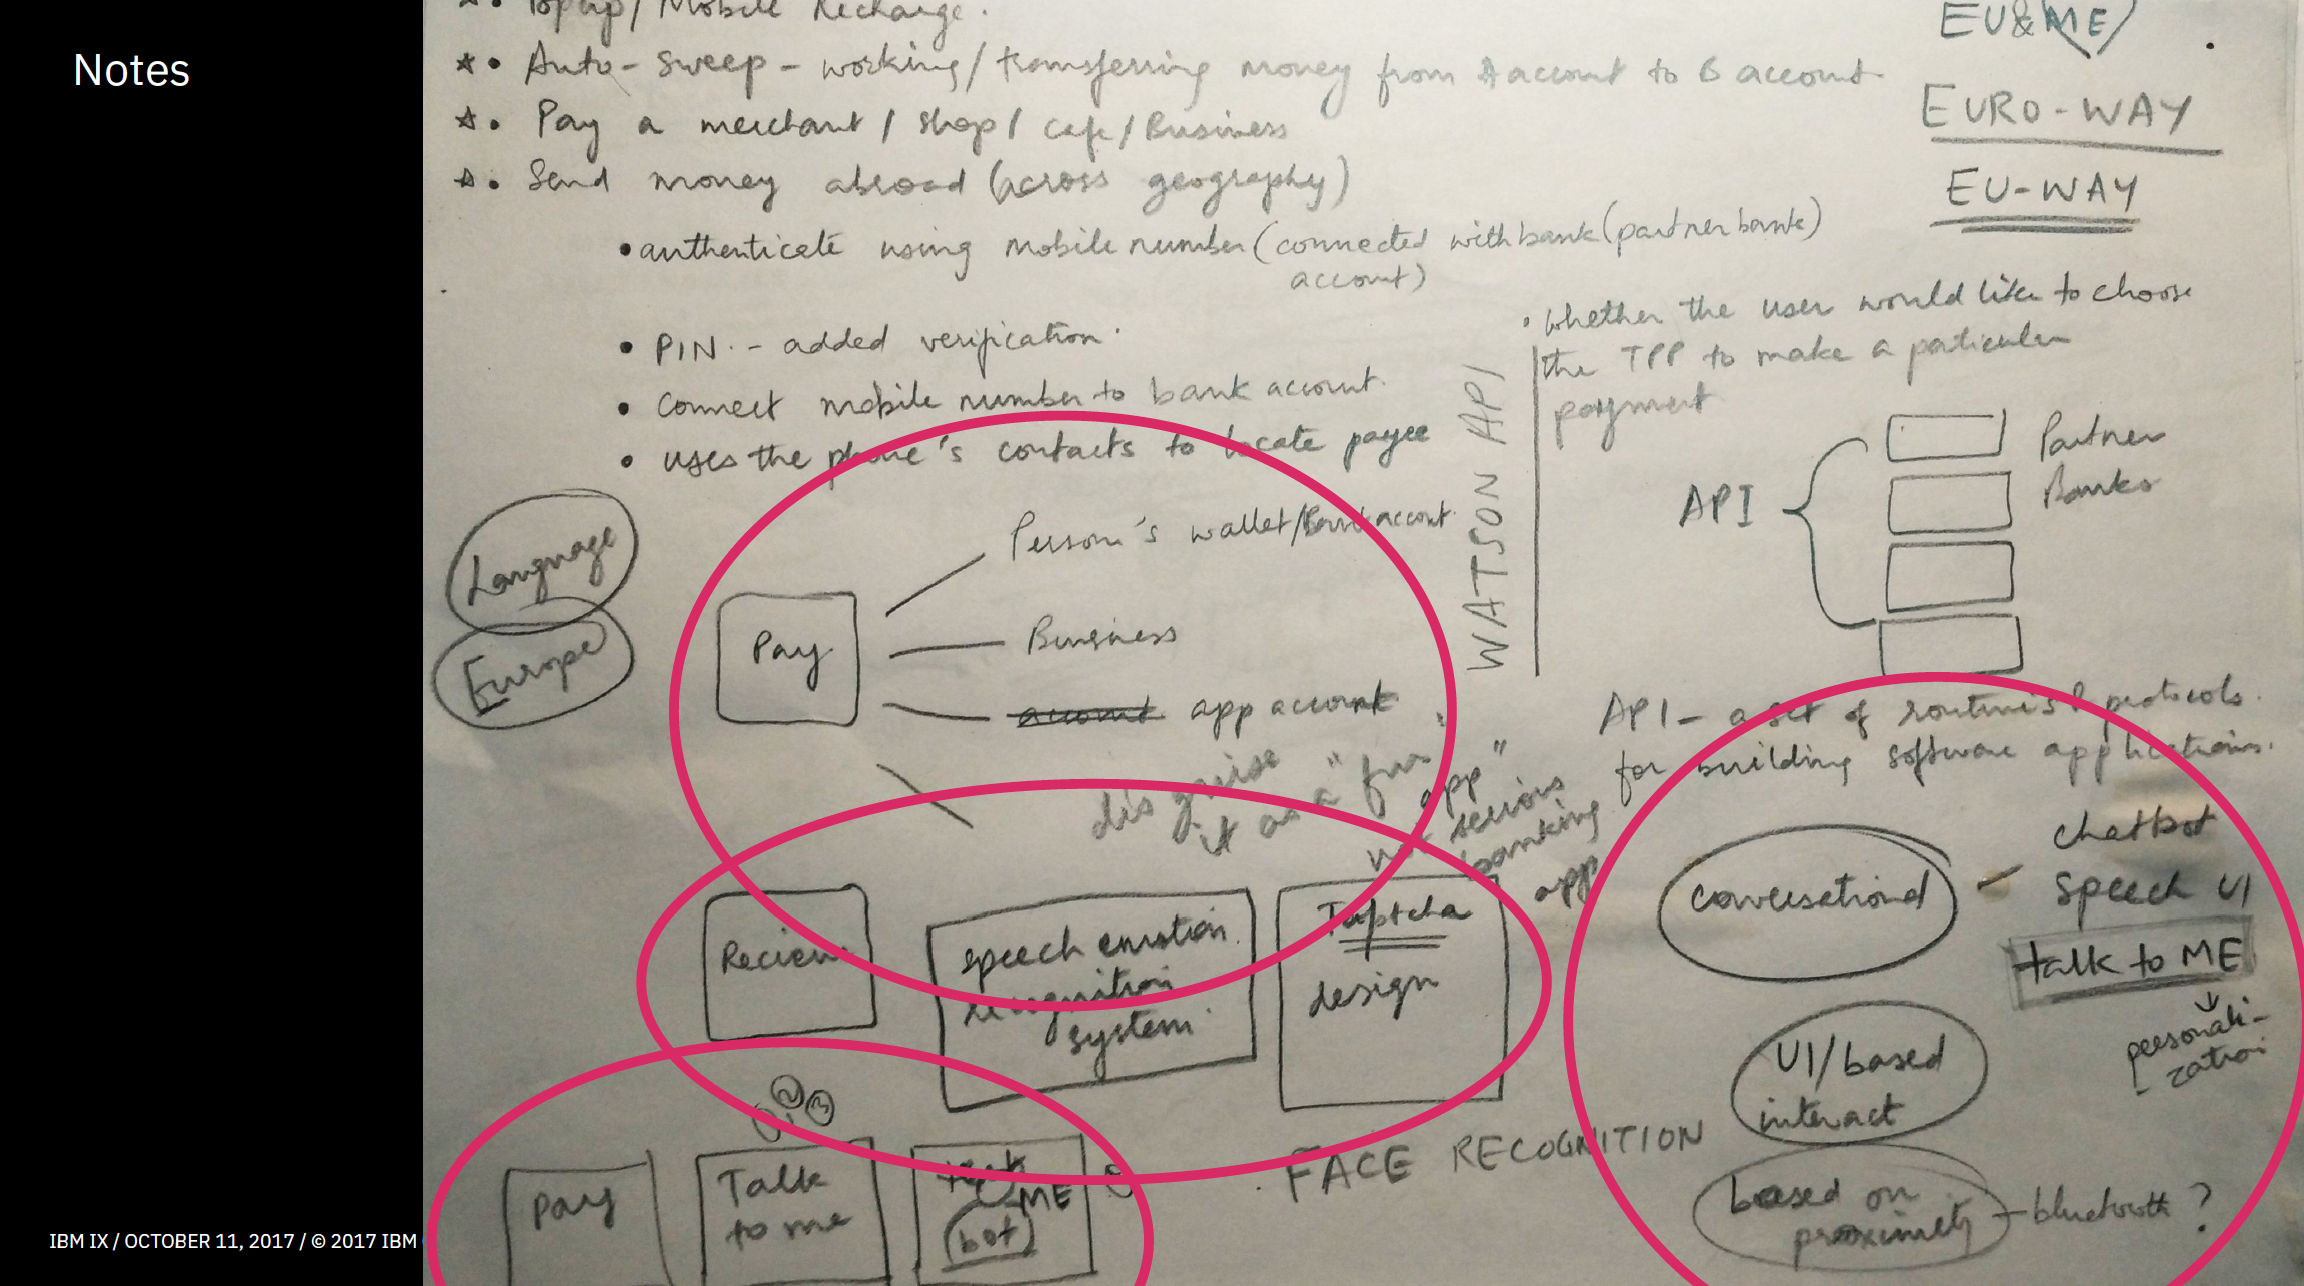 Notes
Topup / Mobile Recharge.
Auto-sweep - working/transferring money from A account to B account
Pay a merchant / shop / Cafe / Business
Send money abroad (across geography)
EU&ME
EURO-WAY
EU-WAY
authenticate using mobile number (connected with bank (partner bank)
account)
PIN - added verification.
Connect mobile number to bank account.
uses the phone's contacts to locate payee
whether the user would like to choose
the TPP to make a particular
payment
WATSON API
API
Partner
Banks
Language
Europe
Pay
Person's wallet/Bank account
Business
account app account
disguise
it as a "fun
app"
not serious
banking
app
API - a set of routines & protocols
for building software applications.
Recieve
speech emotion
recognition
system
Taptcha
design
conversational
chatbot
Speech UI
talk to ME
personali-
zation
UI/based
interact
FACE RECOGNITION
based on
proximity
bluetooth ?
Pay
Talk
to me
ME
bot
IBM IX / OCTOBER 11, 2017 / © 2017 IBM